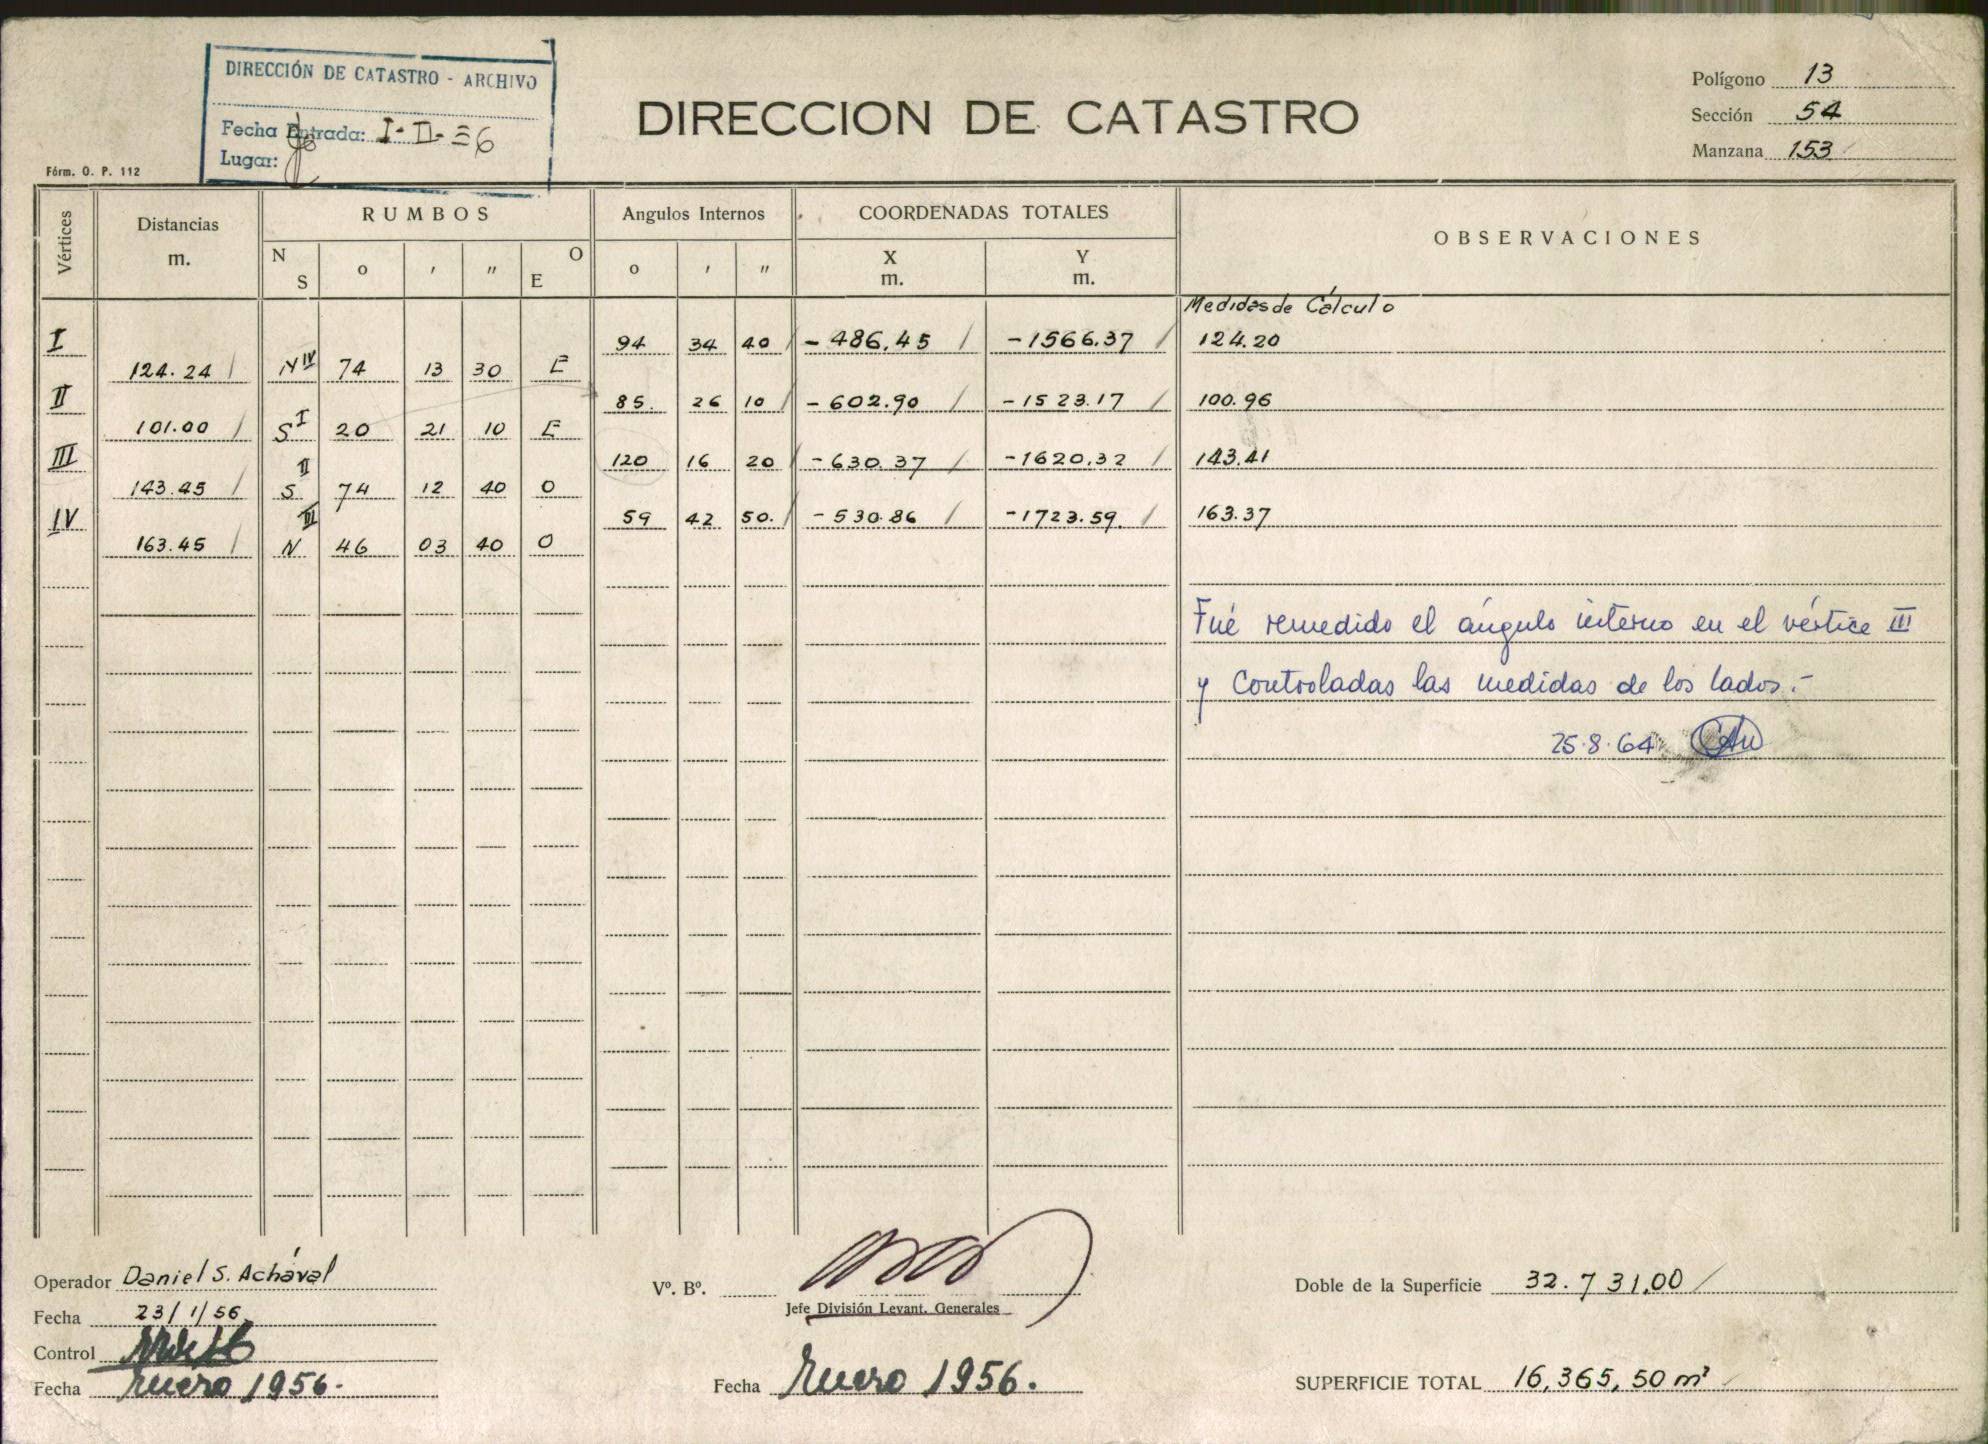 DIRECCIÓN DE CATASTRO - ARCHIVO
Fecha Entrada: I-II-56
Lugar:
Fórm. O. P. 112
DIRECCION DE CATASTRO
Polígono 13
Sección 54
Manzana 153
Vértices Distancias m. RUMBOS Angulos Internos COORDENADAS TOTALES OBSERVACIONES
N S o ' " O E o ' " X m. Y m.
Medidas de Cálculo
I 94 34 40 -486,45 -1566.37 124.20
124.24 N IV 74 13 30 E
II 85. 26 10 -602.90 -1523.17 100.96
101.00 S I 20 21 10 E
III 120 16 20 -630.37 -1620,32 143.41
143.45 S II 74 12 40 O
IV 59 42 50. -530.86 -1723.59. 163.37
163.45 N III 46 03 40 O
Fué remedido el ángulo interno en el vértice III
y Controladas las medidas de los lados.-
25.8.64
Operador Daniel S. Achával
Fecha 23/1/56
Control
Fecha Enero 1956.
Vº. Bº.
Jefe División Levant. Generales
Fecha Enero 1956.
Doble de la Superficie 32.731,00
SUPERFICIE TOTAL 16,365,50 m²